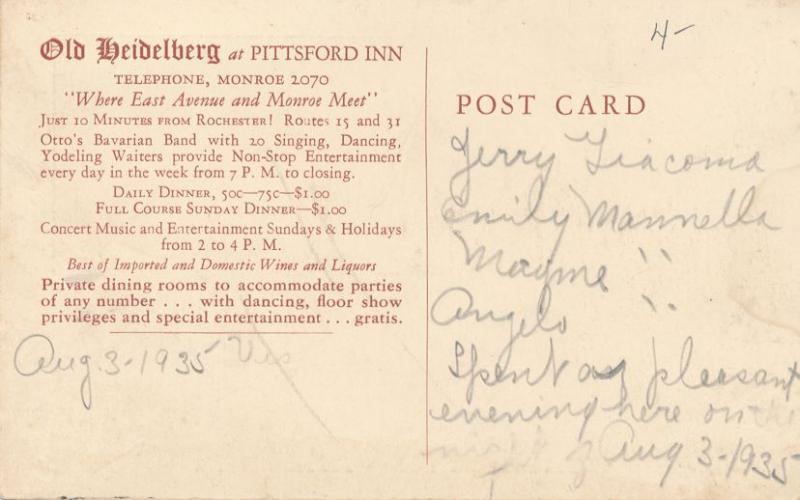 Old Heidelberg at PITTSFORD INN
TELEPHONE, MONROE 2070
"Where East Avenue and Monroe Meet"
JUST 10 MINUTES FROM ROCHESTER! ROUTES 15 and 31
Otto's Bavarian Band with 20 Singing, Dancing,
Yodeling Waiters provide Non-Stop Entertainment
every day in the week from 7 P. M. to closing.
DAILY DINNER, 50c—75c—$1.00
FULL COURSE SUNDAY DINNER—$1.00
Concert Music and Entertainment Sundays & Holidays
from 2 to 4 P. M.
Best of Imported and Domestic Wines and Liquors
Private dining rooms to accommodate parties
of any number . . . with dancing, floor show
privileges and special entertainment . . . gratis.
Aug. 3-1935
4-
POST CARD
Jerry Giacoma
Emily Mannella
Mayme "
Angelo "
Spent a pleasant
evening here on the
night of Aug 3-1935